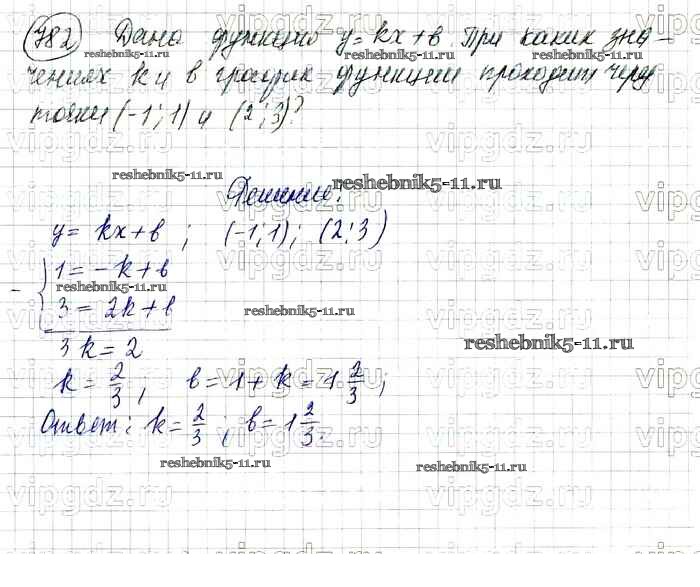 782 Дана функция y = kx + в При каких зна-
чениях k и в график функции проходит через
точки (-1; 1) и (2; 3)?
Решение:
y = kx + в ; (-1; 1); (2; 3)
1 = -k + в
3 = 2k + в
3k = 2
k = 2/3 ; в = 1 + k = 1 2/3 ;
Ответ: k = 2/3 ; в = 1 2/3.
reshebnik5-11.ru
vipgdz.ru